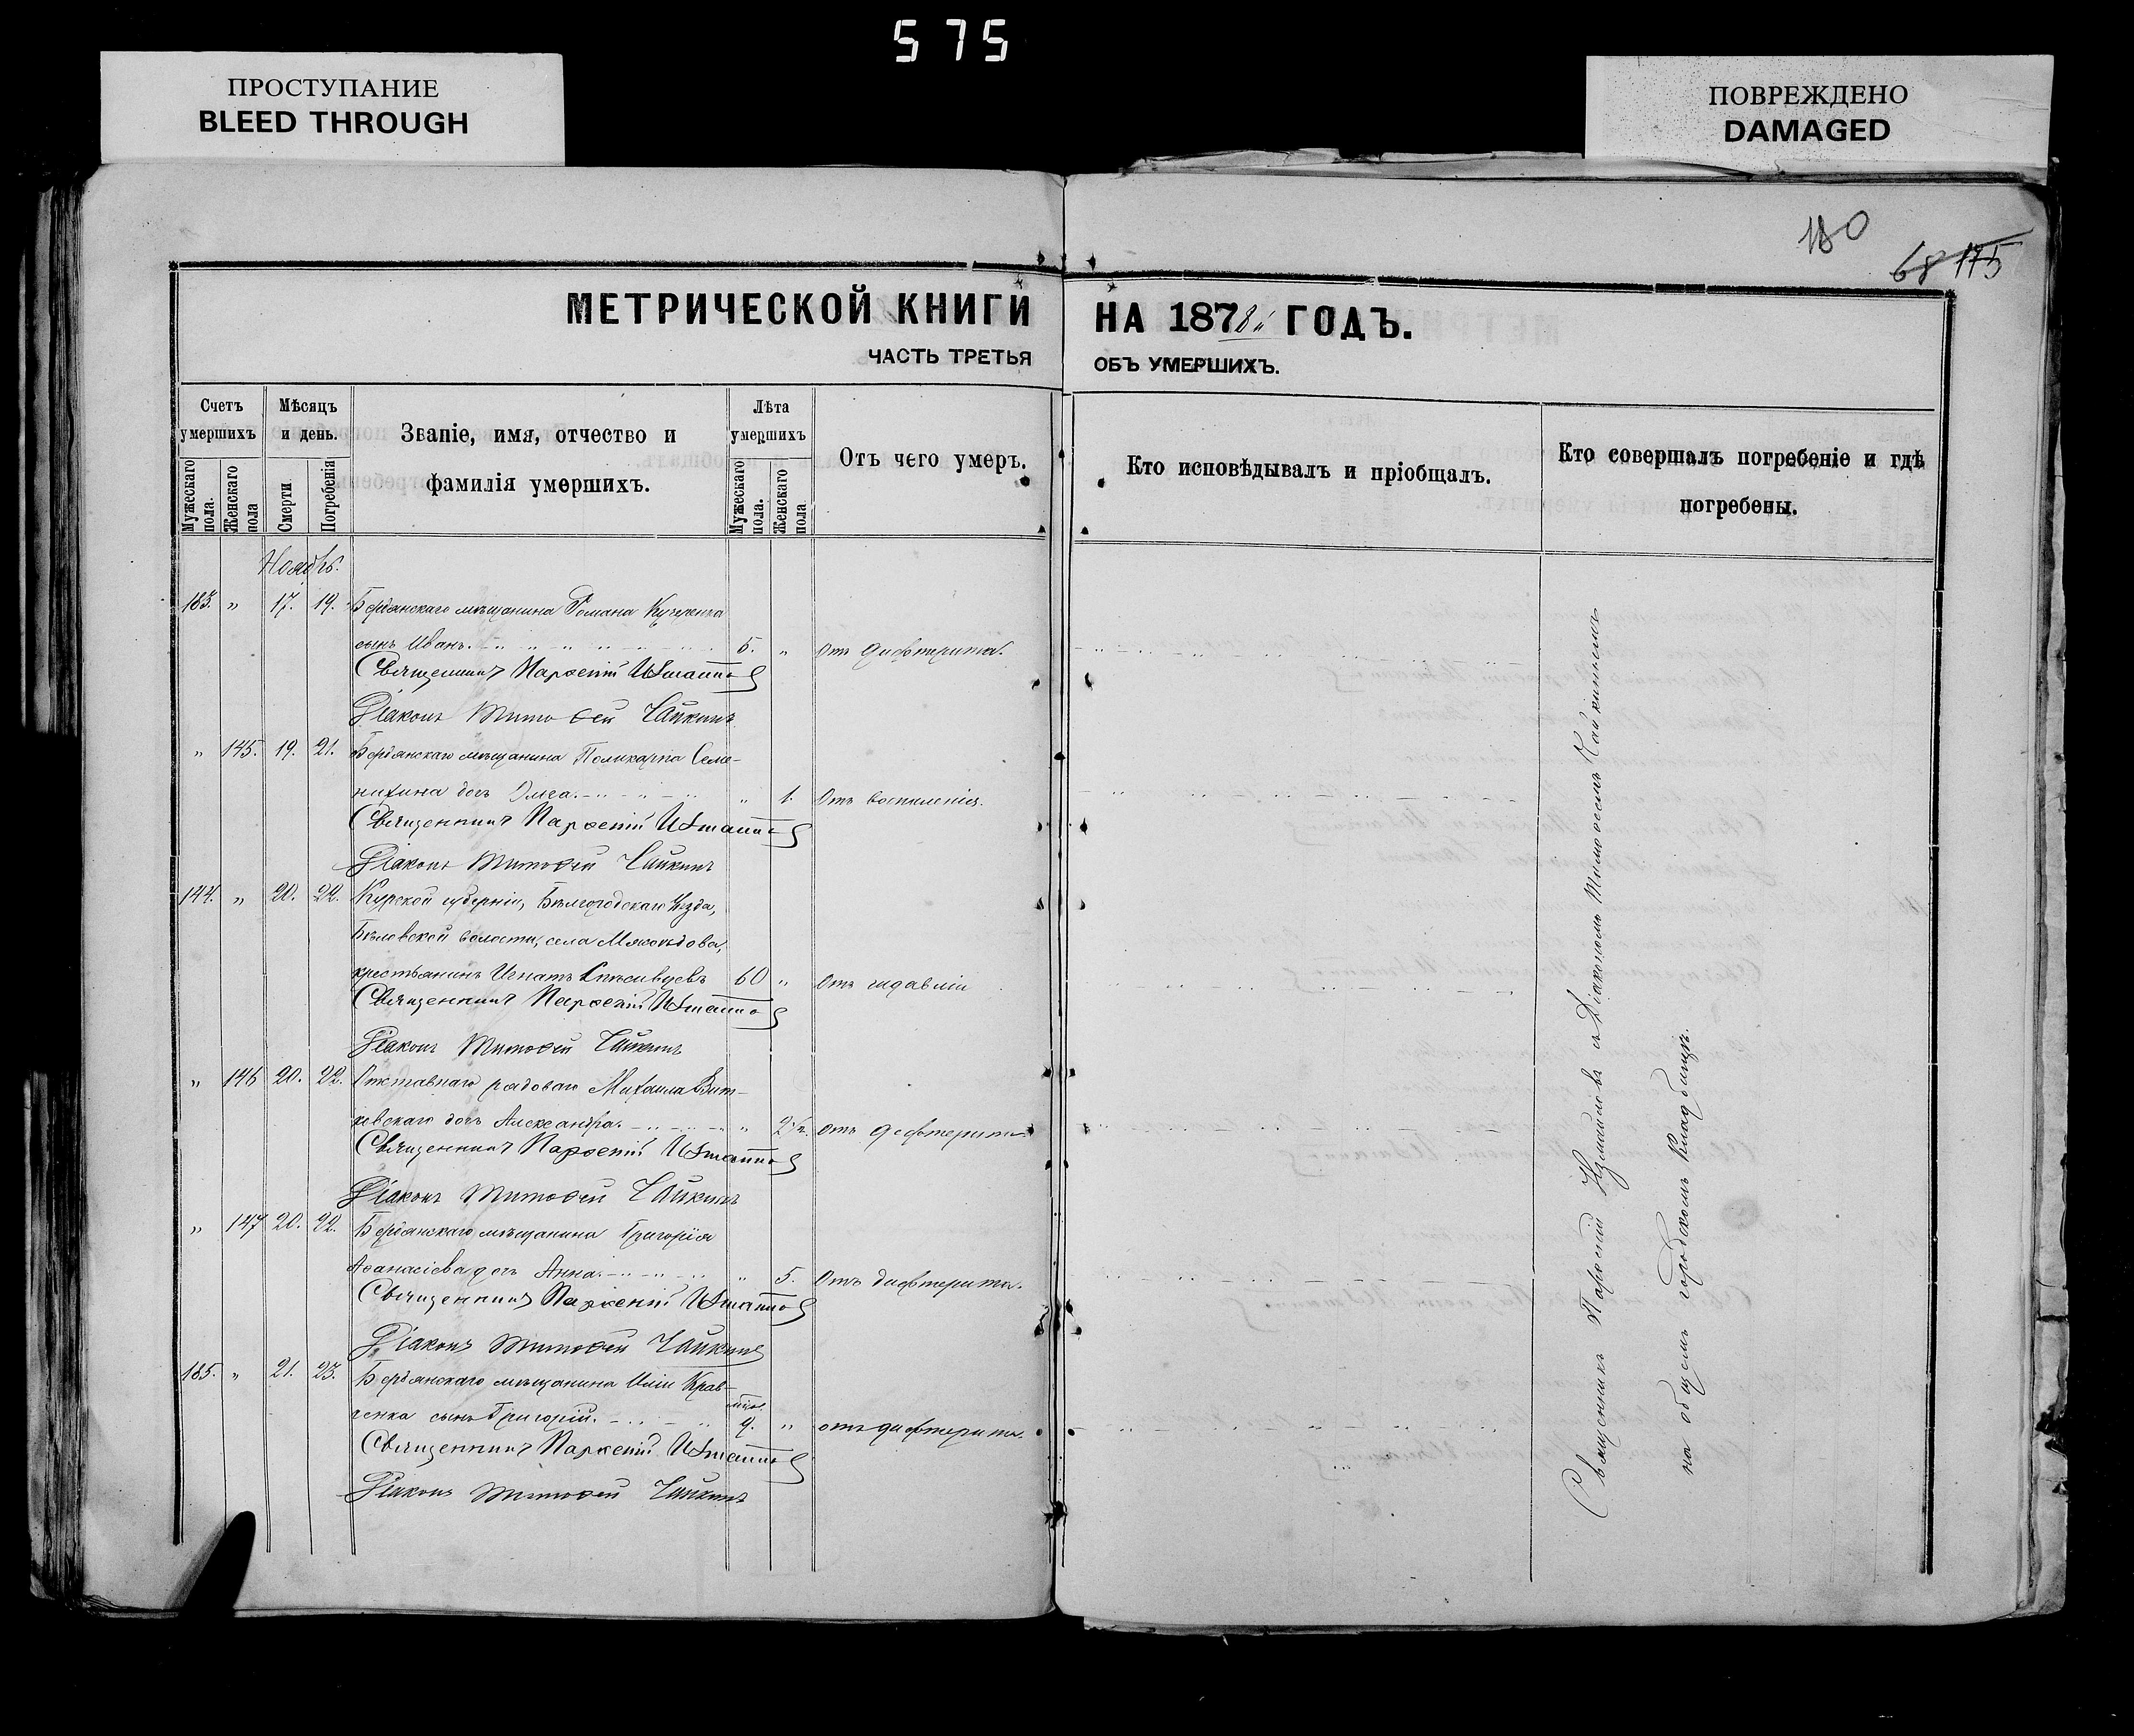 575
ПРОСТУПАНИЕ
BLEED THROUGH
ПОВРЕЖДЕНО
DAMAGED
180
68 175
МЕТРИЧЕСКОЙ КНИГИ НА 1878й ГОДЪ.
ЧАСТЬ ТРЕТЬЯ ОБЪ УМЕРШИХЪ.
Счетъ умершихъ
Мужескаго пола.
Женскаго пола
Мѣсяцъ и день.
Смерти
Погребенія
Званіе, имя, отчество и
фамилія умершихъ.
Лѣта умершихъ
Мужескаго пола.
Женскаго пола
Отъ чего умеръ.
Кто исповѣдывалъ и пріобщалъ.
Кто совершалъ погребеніе и гдѣ
погребены.
Ноябрь.
183. " 17. 19. Бердянскаго мѣщанина Романа Кучеренка
сынъ Иванъ. 5. " Отъ дифтерита.
Священникъ Парѳеній
Діаконъ Тимоѳей Чайкинъ
" 145. 19. 21. Бердянскаго мѣщанина Поликарпа Семе-
нихина дочь Ольга. " 1. Отъ воспаленія.
Священникъ Парѳеній
Діаконъ Тимоѳей Чайкинъ
144. " 20. 22. Курской губерніи, Бѣлгородскаго Уѣзда,
Бѣловской волости, села Мясоѣдова,
крестьянинъ Игнатъ 60 " Отъ
Священникъ Парѳеній
Діаконъ Тимоѳей Чайкинъ
" 146 20. 22. Отставнаго рядоваго Михаила Вит-
ковскаго дочь Александра. " 2½. Отъ дифтерита
Священникъ Парѳеній
Діаконъ Тимоѳей Чайкинъ
" 147 20. 22. Бердянскаго мѣщанина Григорія
Аѳанасіева дочь Анна. " 5. Отъ дифтерита.
Священникъ Парѳеній
Діаконъ Тимоѳей Чайкинъ
185. " 21. 23. Бердянскаго мѣщанина Иліи Крав-
ченка сынъ Григорій. 9. " отъ дифтерита.
Священникъ Парѳеній
Діаконъ Тимоѳей Чайкинъ
Священникъ Парѳеній Измаиловъ съ Діакономъ Тимоѳеемъ Чайкинымъ
на общемъ городскомъ кладбищѣ.